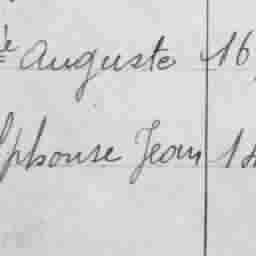 è Auguste 16
lphonse Jean 14